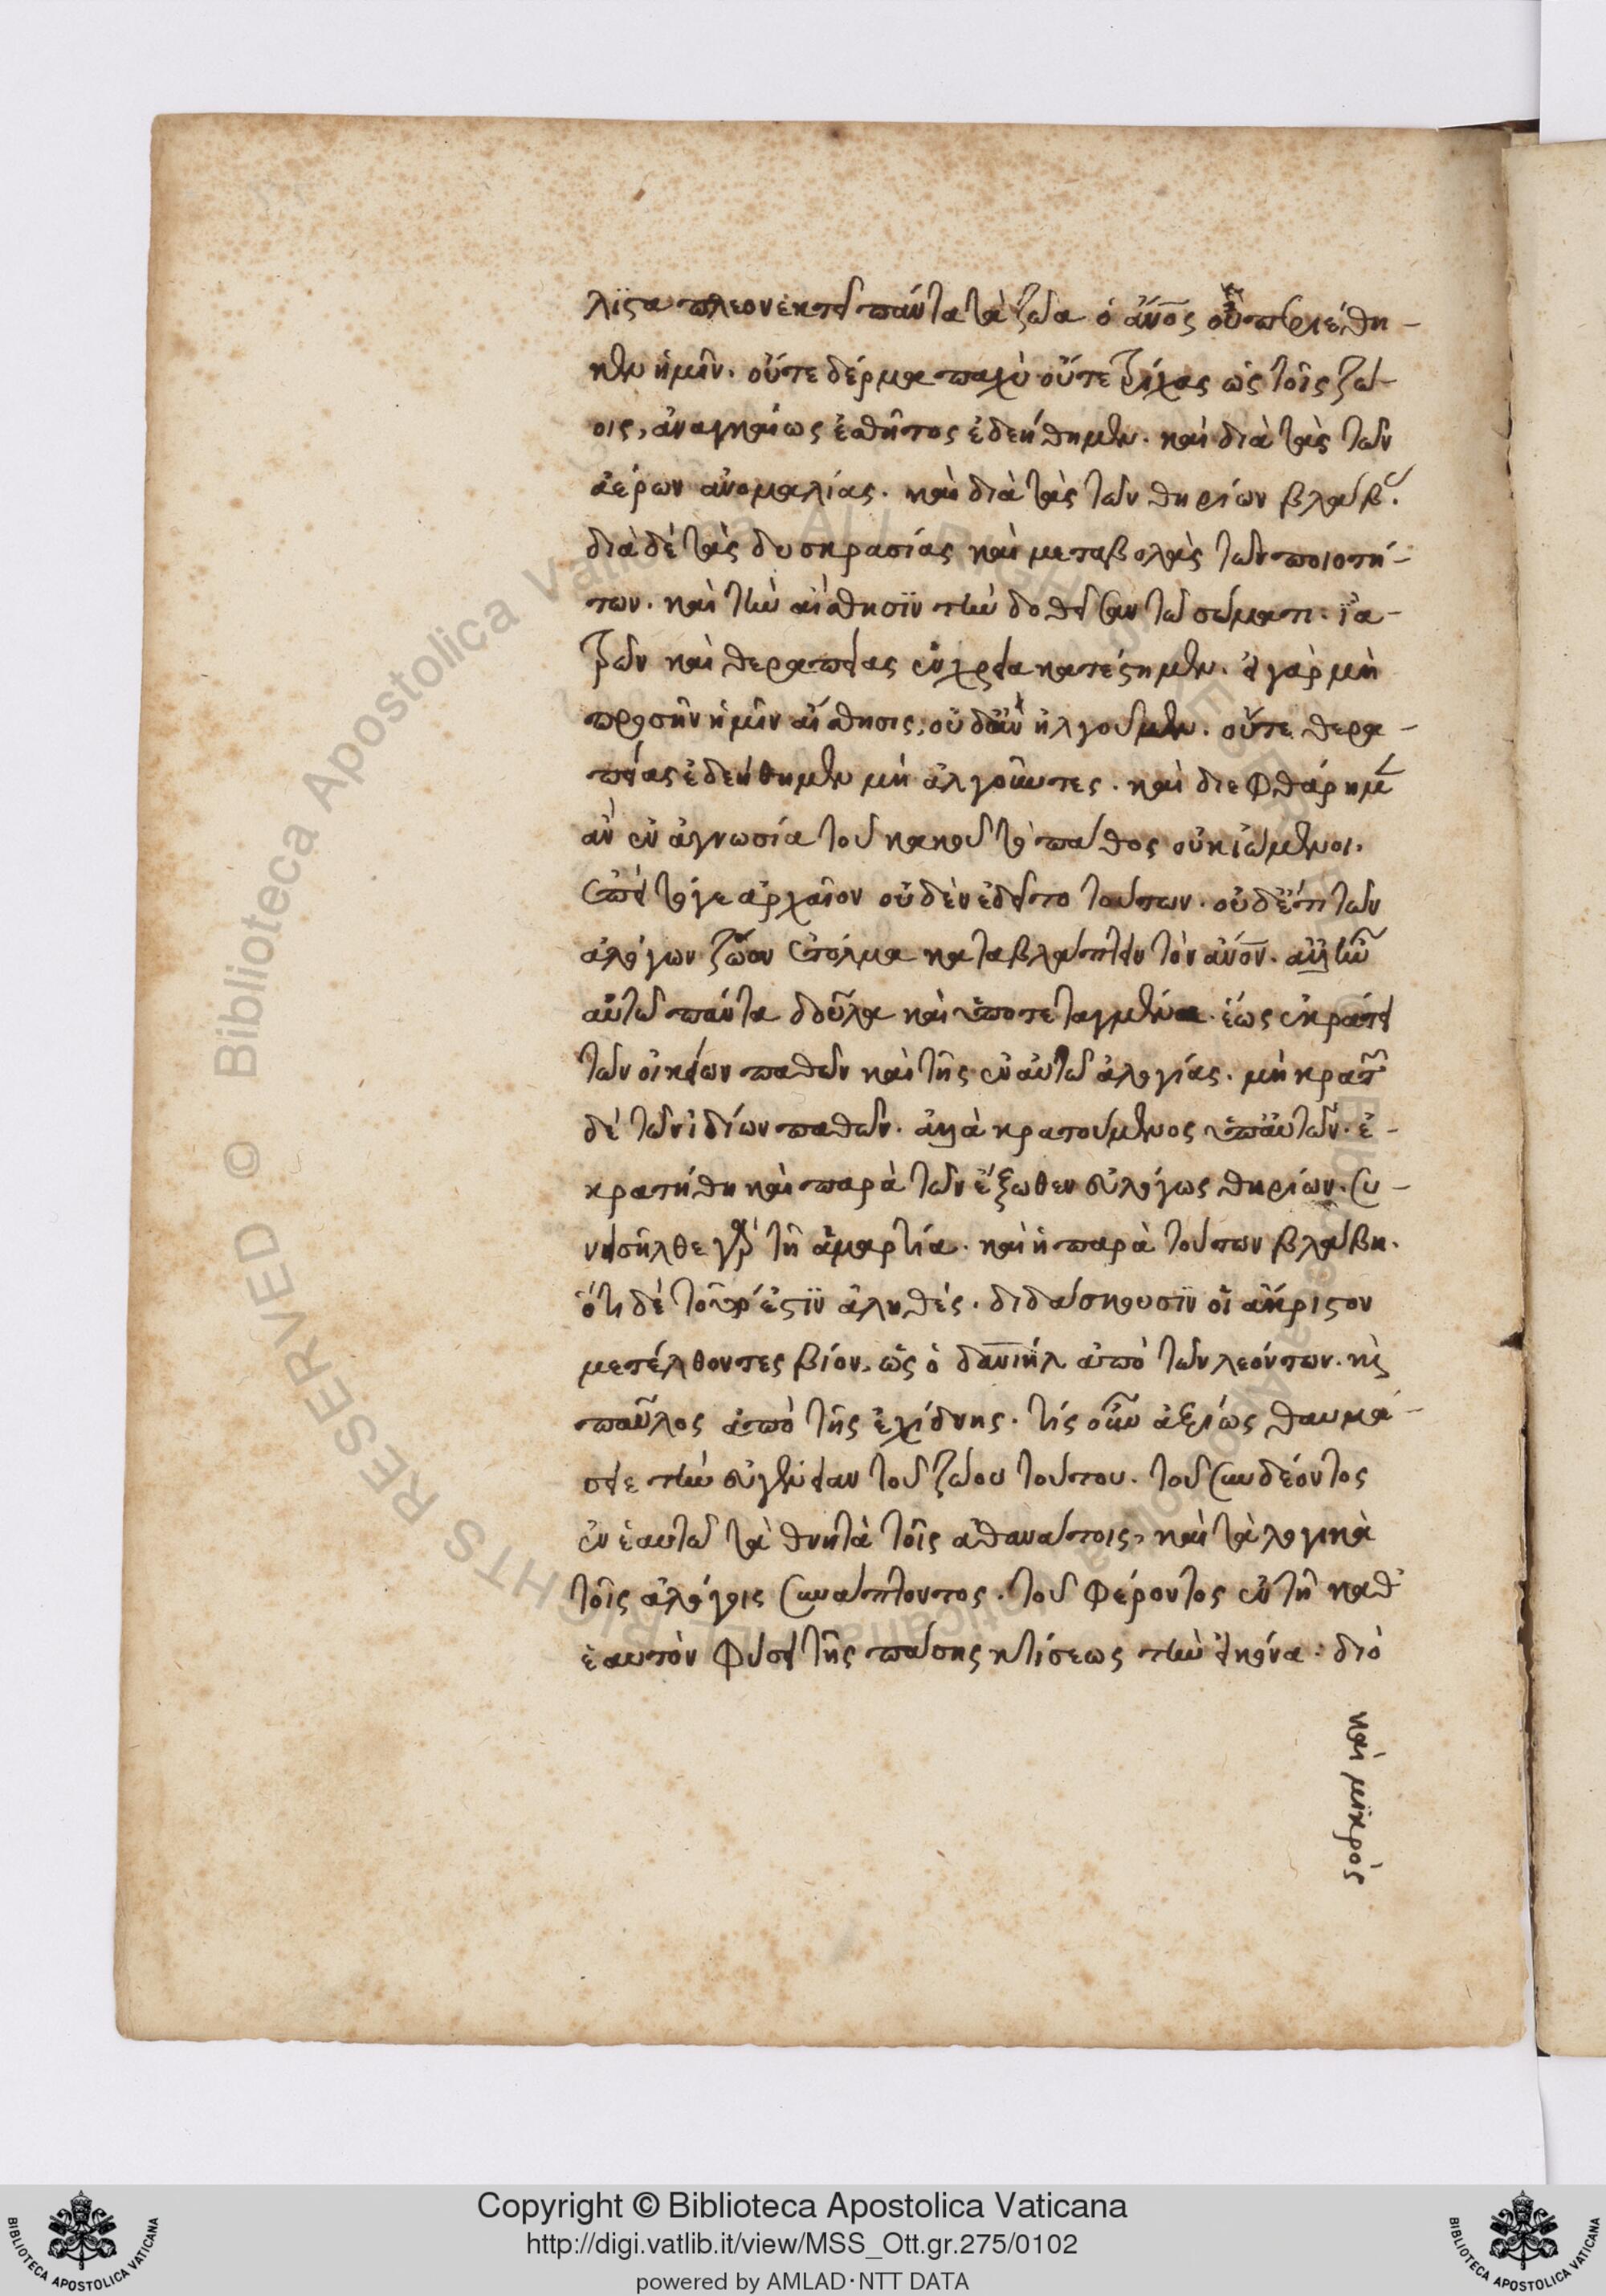 λϊστα πλεονεκτεῖ πάντα τὰ ζῶα ὁ ἄνος οὐ περιετέθη-
κεν ἡμῖν. οὔτε δέρμα παχὺ οὔτε τρίχας ὡς τοῖς ζώ-
οις, ἀναγκαίως ἐσθῆτος ἐδεήθημεν. καὶ διὰ τὰς τῶν
ἀέρων ἀνομαλίας. καὶ διὰ τὰς τῶν θηρίων βλάβ.
διὰ δὲ τὰς δυσκρασίας καὶ μεταβολὰς τῶν ποιοτή-
των. καὶ τὴν αἴσθησϊν τὴν δοθεῖσαν τῶ σώματι. ϊα-
τρῶν καὶ θεραπείας ἐν χρεία κατέστημεν. εἰ γὰρ μὴ
προσῆν ἡμῖν αἴσθησις, οὐδ' ἂν ἠλγοῦμεν. οὔτε θερα-
πείας ἐδεήθημεν μὴ ἀλγοῦντες. καὶ διεφθάρημεν
ἂν ἐν ἀγνωσία τοῦ κακοῦ τὸ πάθος οὐκ ἰώμενοι.
ἐπεὶ τόγε ἀρχαῖον οὐδὲν ἐδεῖτο τούτων. οὐδέτι τῶν
ἀλόγων ζῶον ἐτόλμα καταβλάπτειν τὸν ἄνον. ἀλλ' ἦν
αὐτῶ πάντα δοῦλα καὶ ὑποτεταγμένα. ἕως ἐκράτει
τῶν οἰκείων παθῶν καὶ τῆς ἐν αὐτῶ ἀλογίας. μὴ κρατῶν
δὲ τῶν ἰδίων παθῶν. ἀλλὰ κρατούμενος ὑπ' αὐτῶν. ἐ-
κρατήθη καὶ παρὰ τῶν ἔξωθεν εὐλόγως θηρίων. συ-
νεισῆλθε γὰρ τῆ ἁμαρτία. καὶ ἡ παρὰ τούτων βλάβη.
ὅτι δὲ τοῦτ' ἐστϊν ἀληθές. διδάσκουσϊν οἱ ἄκριστον
μετέλθοντες βίον. ὡς ὁ δανιὴλ ἀπὸ τῶν λεόντων. κς
παῦλος ἀπὸ τῆς ἐχίδνης. τίς οὖν ἀξίως θαυμά-
σειε τὴν εὐγένειαν τοῦ ζώου τούτου. τοῦ συνδέοντος
ἐν ἑαυτῶ τὰ θνητὰ τοῖς ἀθανάτοις, καὶ τὰ λογικὰ
τοῖς ἀλόγοις συνάπτοντος. τοῦ φέροντος ἐν τῆ καθ'
ἑαυτὸν φύσει τῆς πάσης κτίσεως τὴν εἰκόνα. διὸ
καὶ μϊκρὸς
Copyright © Biblioteca Apostolica Vaticana
http://digi.vatlib.it/view/MSS_Ott.gr.275/0102
powered by AMLAD·NTT DATA